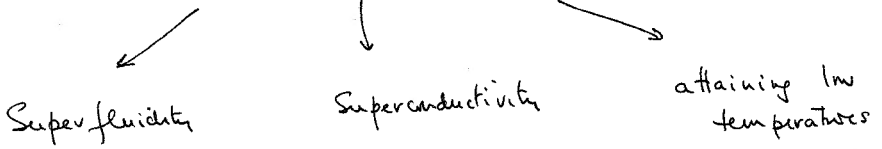 Superfluidity
Superconductivity
attaining low
temperatures